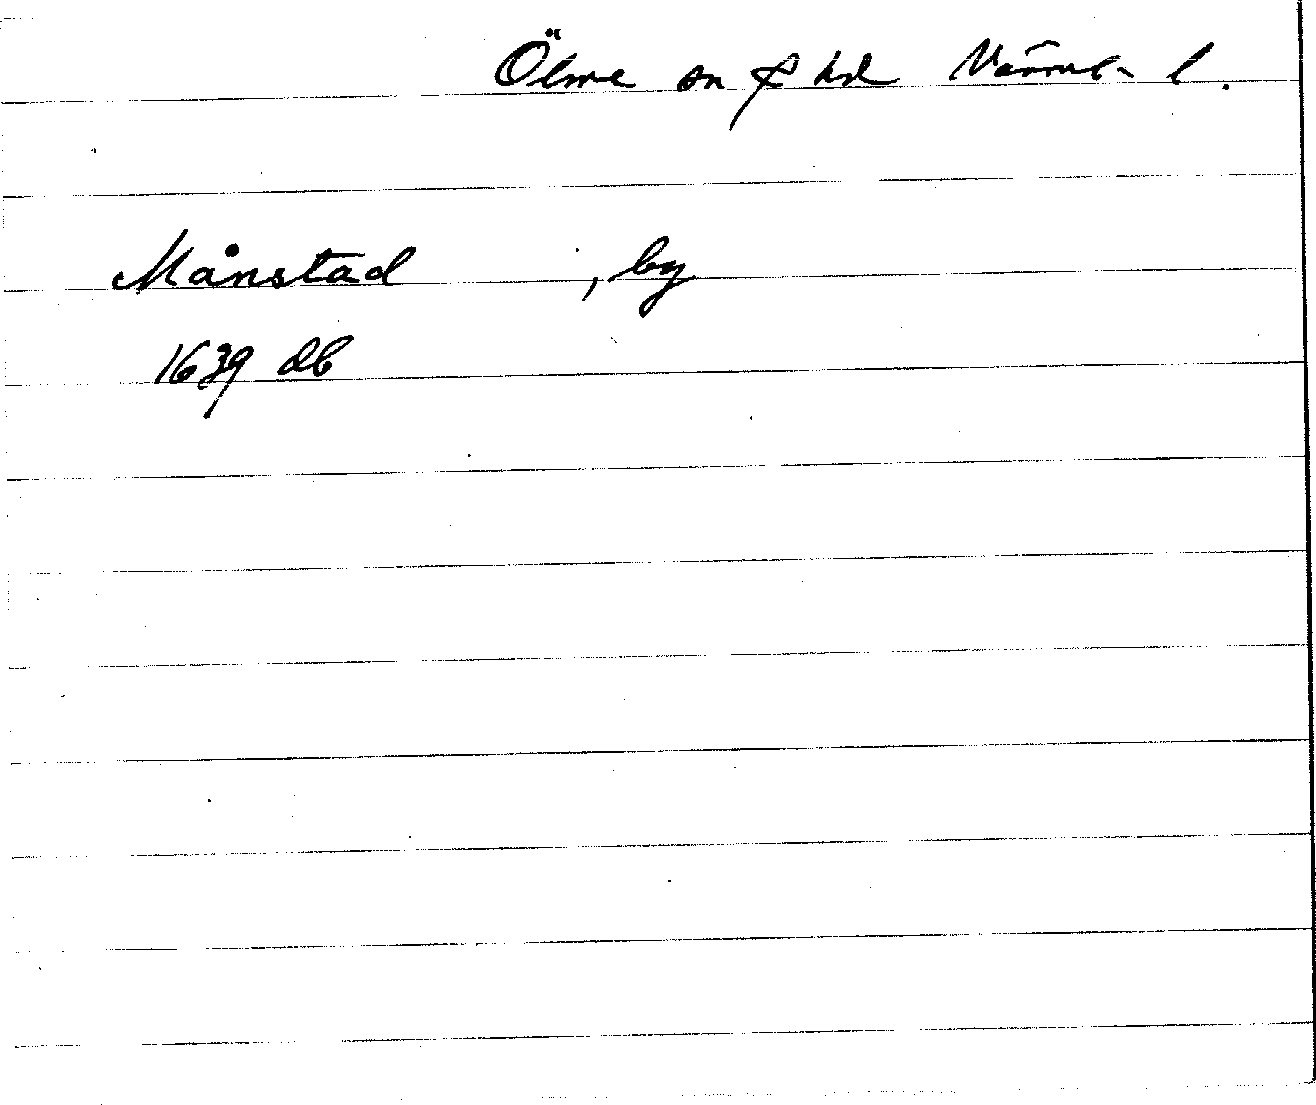 Ölme sn & hd Värml. l.
Månstad , by
1639 db